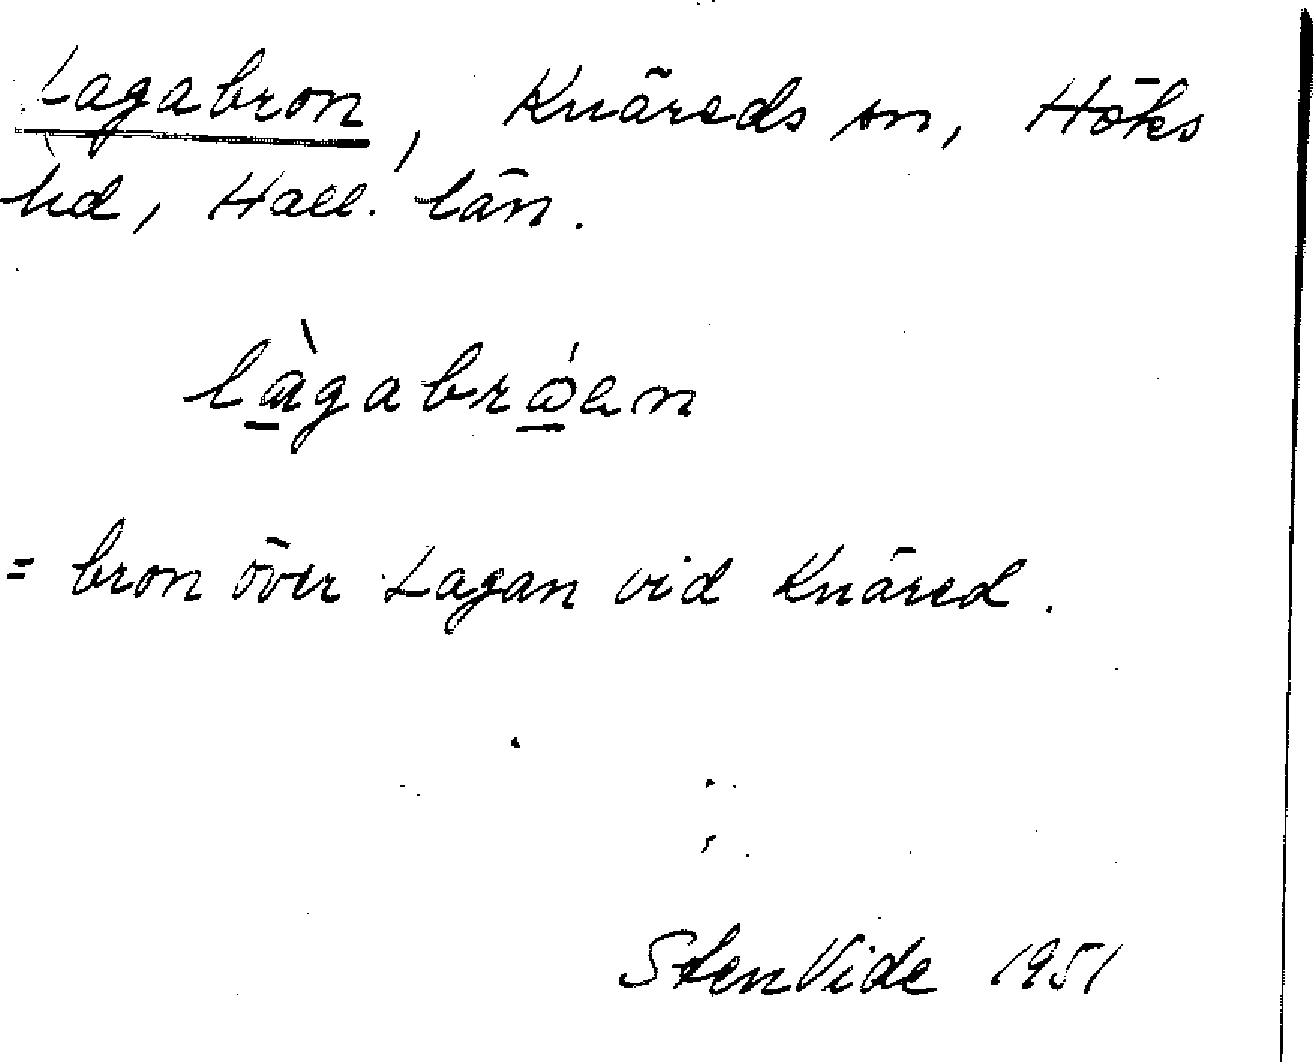 Lagabron, Knäreds sn, Höks
hd, Hall. län.
làgabróen
= bron över Lagan vid Knäred.
Sten Vide 1951